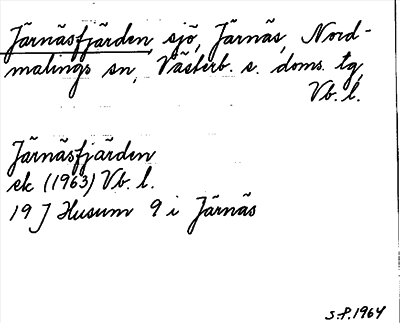 Järnäsfjärden sjö, Järnäs, Nord-
malings sn, Västerb. s. doms. tg,
Vb. l.
Järnäsfjärden
ek (1963) Vb. l.
19 J Husum 9 i Järnäs
S.P. 1964